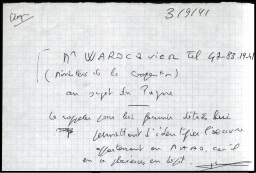 3/9/41
Mr WARSCAVIECK Tel 47-83-19-41
(Ministère de la Coopération)
au sujet du Pagne
le rappeler pour lui fournir détails lui
permettant d'identifier l'oeuvre
appartenant au MAAO, car il
en a plusieurs en dépôt